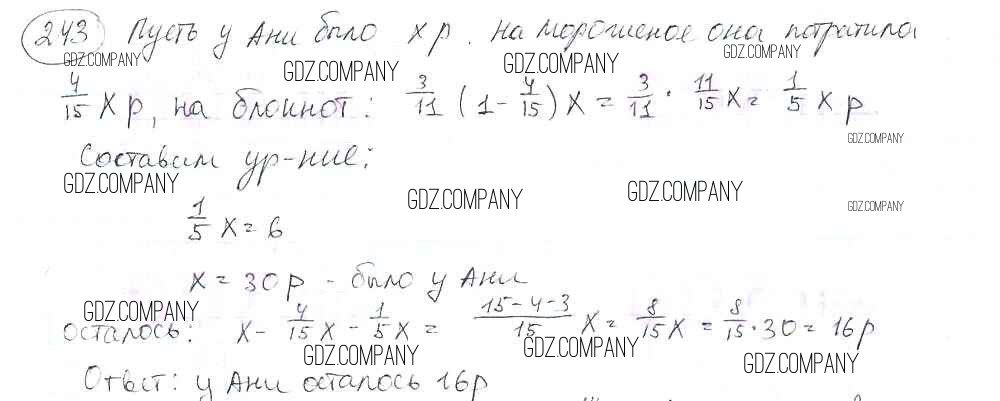 243 Пусть у Ани было x р. На мороженое она потратила
GDZ.COMPANY GDZ.COMPANY GDZ.COMPANY GDZ.COMPANY
4/15 x р, на блокнот: 3/11 (1 - 4/15) x = 3/11 · 11/15 x = 1/5 x р
GDZ.COMPANY
Составим ур-ние:
GDZ.COMPANY GDZ.COMPANY GDZ.COMPANY GDZ.COMPANY
1/5 x = 6
x = 30 р - было у Ани
GDZ.COMPANY
осталось: x - 4/15 x - 1/5 x = 15-4-3/15 x = 8/15 x = 8/15 · 30 = 16 р
GDZ.COMPANY GDZ.COMPANY GDZ.COMPANY
Ответ: у Ани осталось 16 р